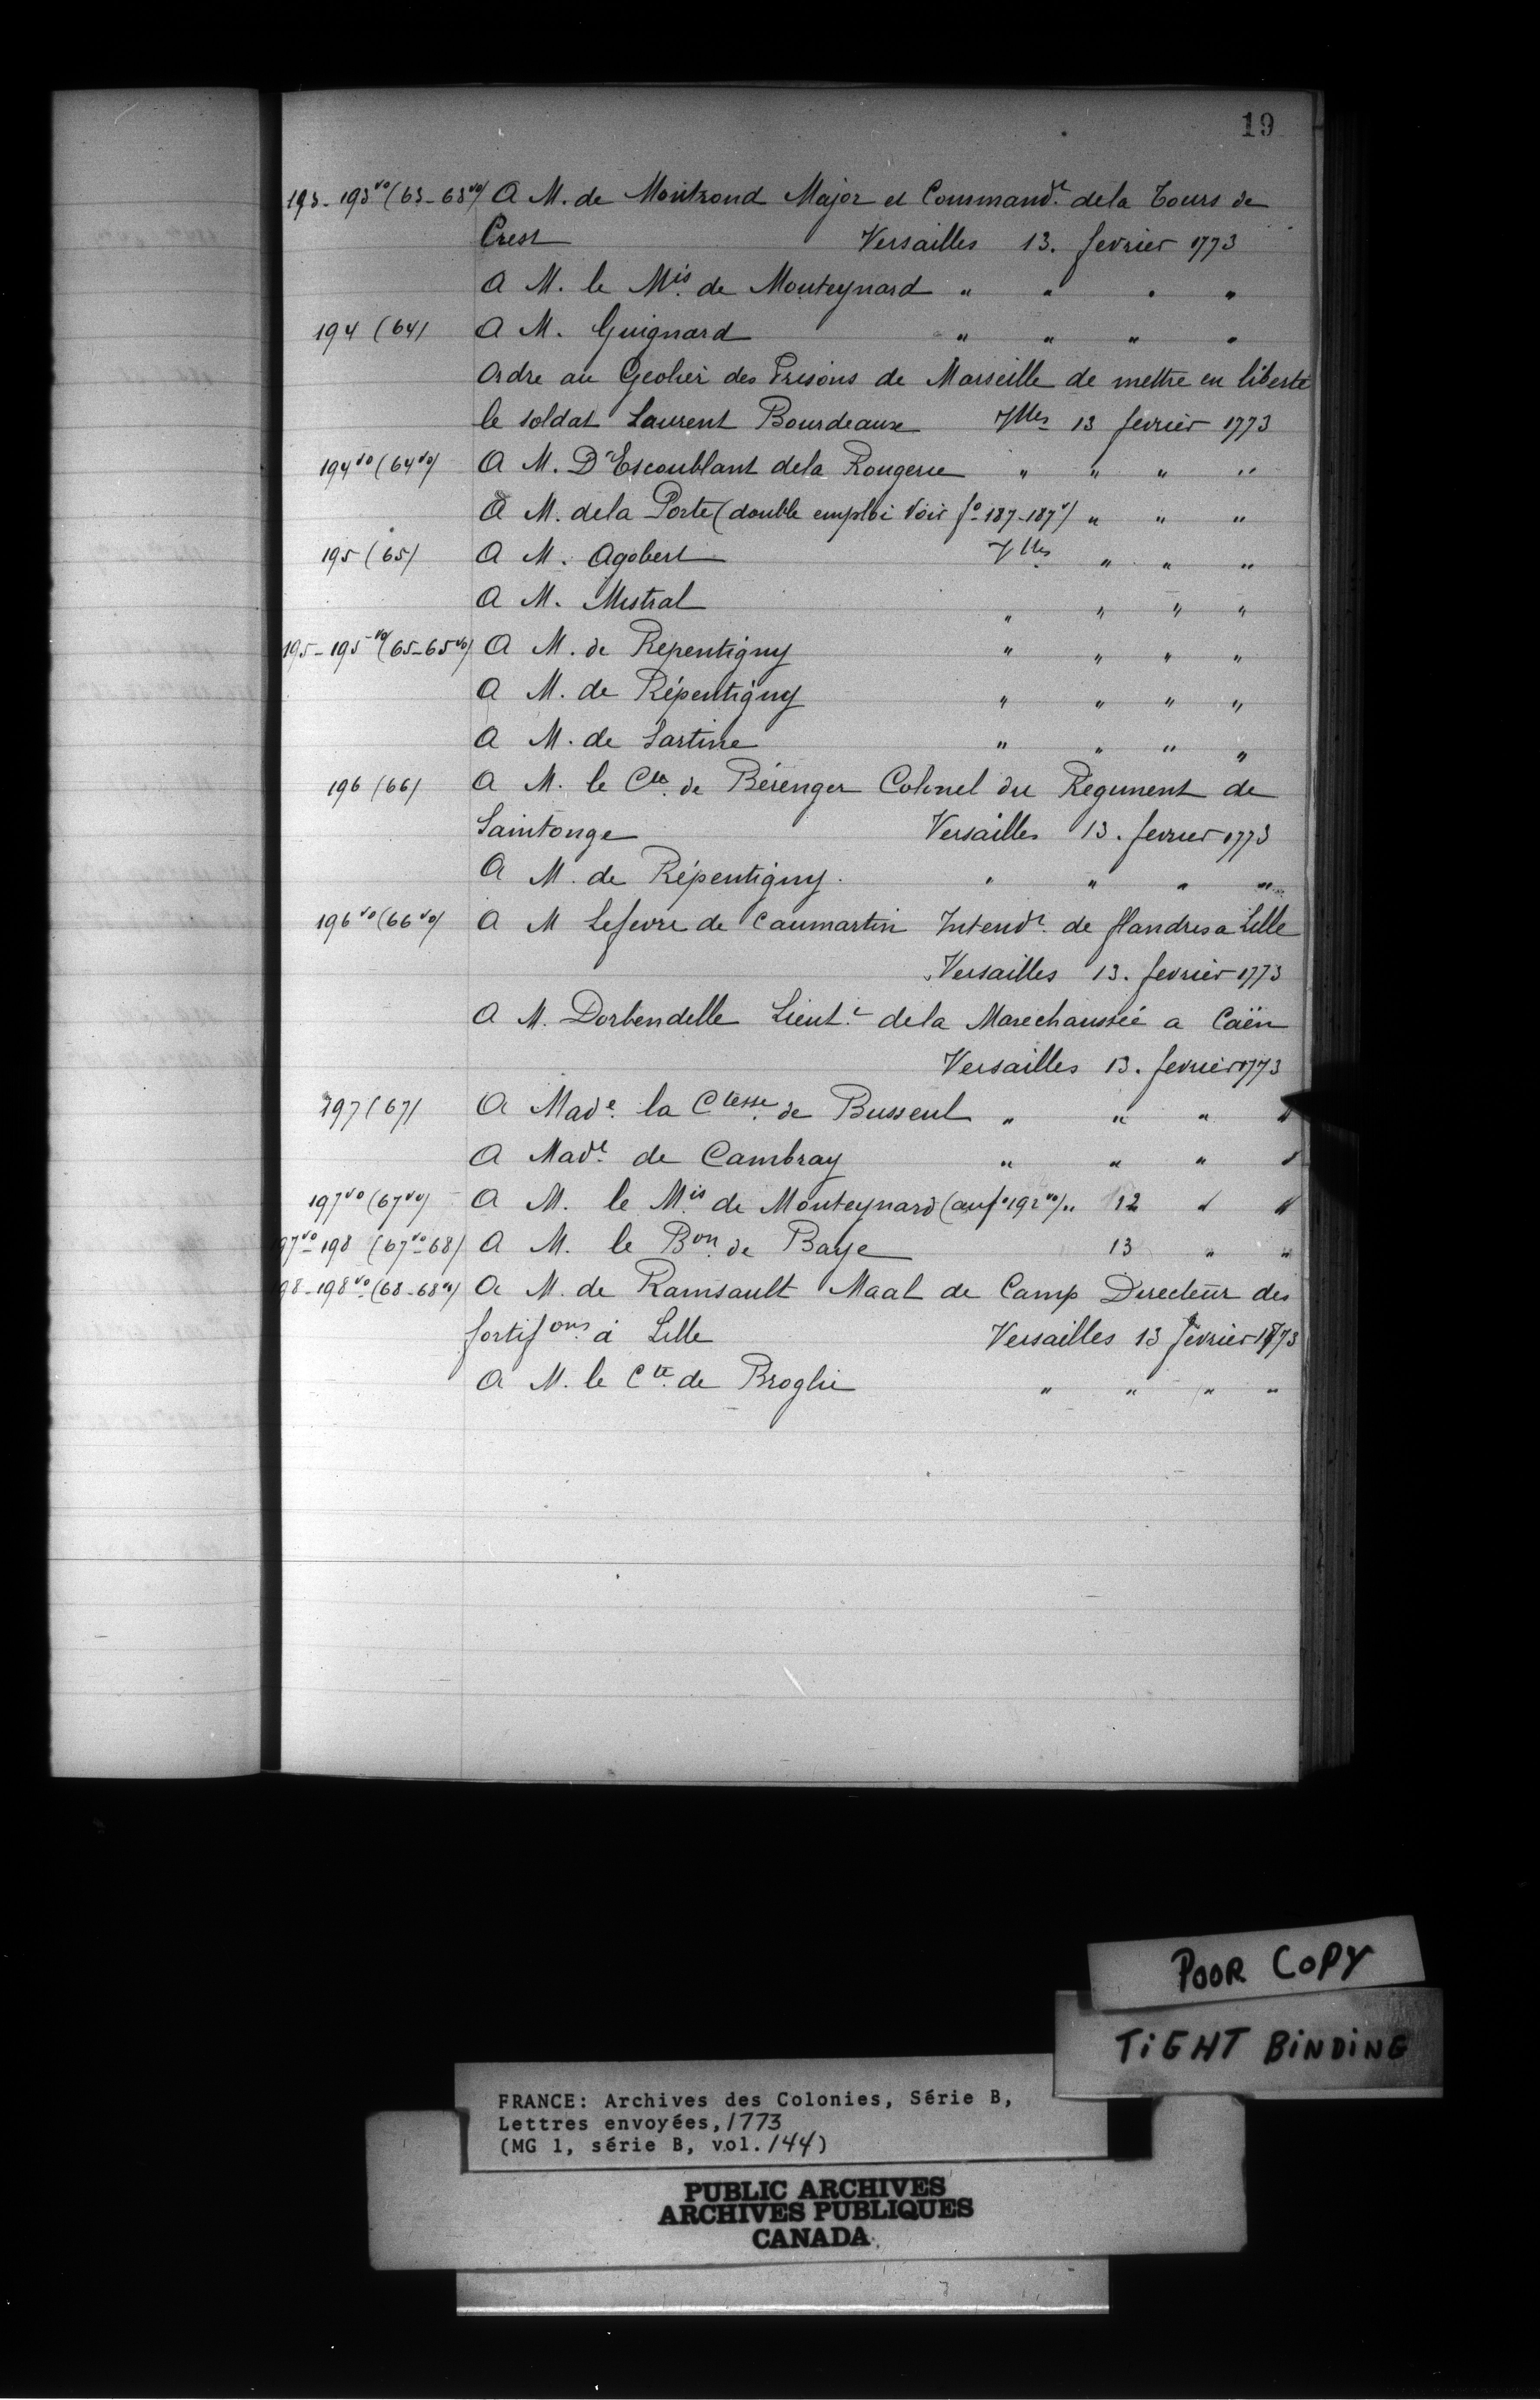 19
193-193vo (63-63vo) A M. de Montrond Major et Commandt. dela Tours de
Crest Versailles 13. fevrier 1773
A M. le Mis. de Monteynard " " " "
194 (64) A M. Guignard " " " "
Ordre au Geolier des Prisons de Marseille de mettre en liberté
le soldat Laurent Bourdeaux Vlles 13 fevrier 1773
194vo (64vo) A M. D'Escoublant dela Rougerie " " " "
A M. dela Porte (double emploi Voir fo 187-187v) " " "
195 (65) A M. Agobert Vlles " " "
A M. Mistral " " " "
195-195vo (65-65vo) A M. de Repentigny " " " "
A M. de Répentigny " " " "
A M. de Sartine " " " "
196 (66) A M. le Cte. de Bérenger Colonel du Regiment de
Saintonge Versailles 13. fevrier 1773
A M. de Répentigny. " " " "
196vo (66vo) A M Lefevre de Caumartin Intendt. de flandres a Lille
Versailles 13. fevrier 1773
A M. Dorbendelle Lieut.t dela Marechaussée a Caën
Versailles 13. fevrier 1773
197 (67) A Made. la Ctesse. de Busseul " " " "
A Made. de Cambray " " " "
197vo (67vo) A M. le Mis. de Monteynard (au fo 192vo) " 12 " "
97vo-198 (67vo-68) A M. le Bon. de Baye 13 " "
98-198vo (68-68vo) A M. de Ramsault Maal de Camp Directeur des
fortifons. à Lille Versailles 13 fevrier 1773
A M. le Cte. de Broglie " " " "
POOR COPY
TiGHT BiNDiNG
FRANCE: Archives des Colonies, Série B,
Lettres envoyées, 1773
(MG 1, série B, vol. 144)
PUBLIC ARCHIVES
ARCHIVES PUBLIQUES
CANADA